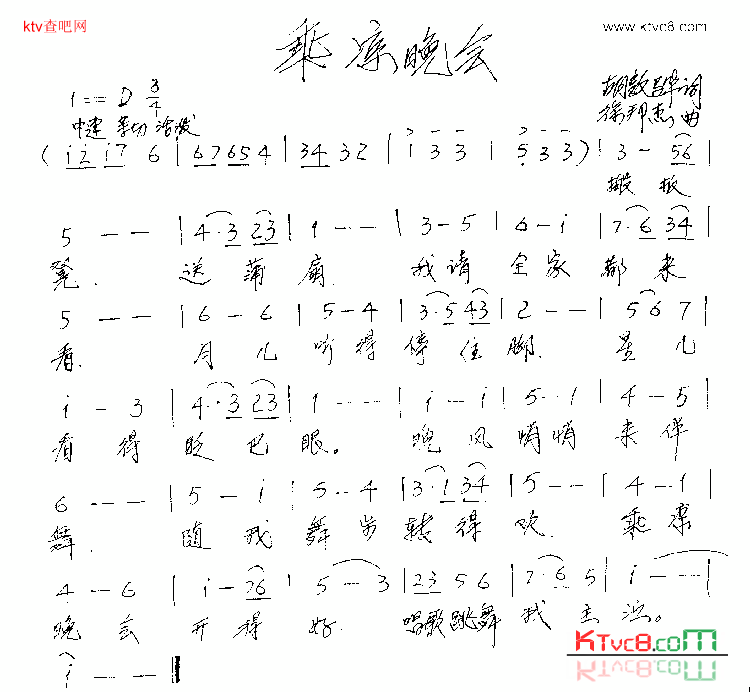 ktv查吧网
www.ktvc8.com
乘凉晚会
1 = D 3/4
中速 亲切 活泼
词
徐邦杰 曲
( i2 i7 6 | 67 65 4 | 34 32 | i 3 3 | 5 3 3 ) | 3 - 56 |
搬板
5 - - | 4·3 23 | 1 - - | 3 - 5 | 6 - i | 7·6 34 |
凳. 送蒲扇. 我请全家都来
5 - - | 6 - 6 | 5 - 4 | 3·5 43 | 2 - - | 5 6 7 |
看. 月儿听得停住脚. 星儿
i - 3 | 4·3 23 | 1 - - | i - i | 5 - 1 | 4 - 5 |
看得眨巴眼。 晚风悄悄来伴
6 - - | 5 - i | 5 - 4 | 3·1 34 | 5 - - | 4 - 1 |
舞. 随我舞步转得欢. 乘凉
4 - 6 | i - 76 | 5 - 3 | 23 5 6 | 7·6 5 | i - - |
晚会开得好. 唱歌跳舞我主
i - - ‖
KTvc8.com